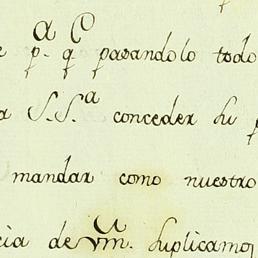 p.ª q.e pasandolo todo
a S.S.ª conceder su p
mandar como nuestro
cia de Vm. suplicamos